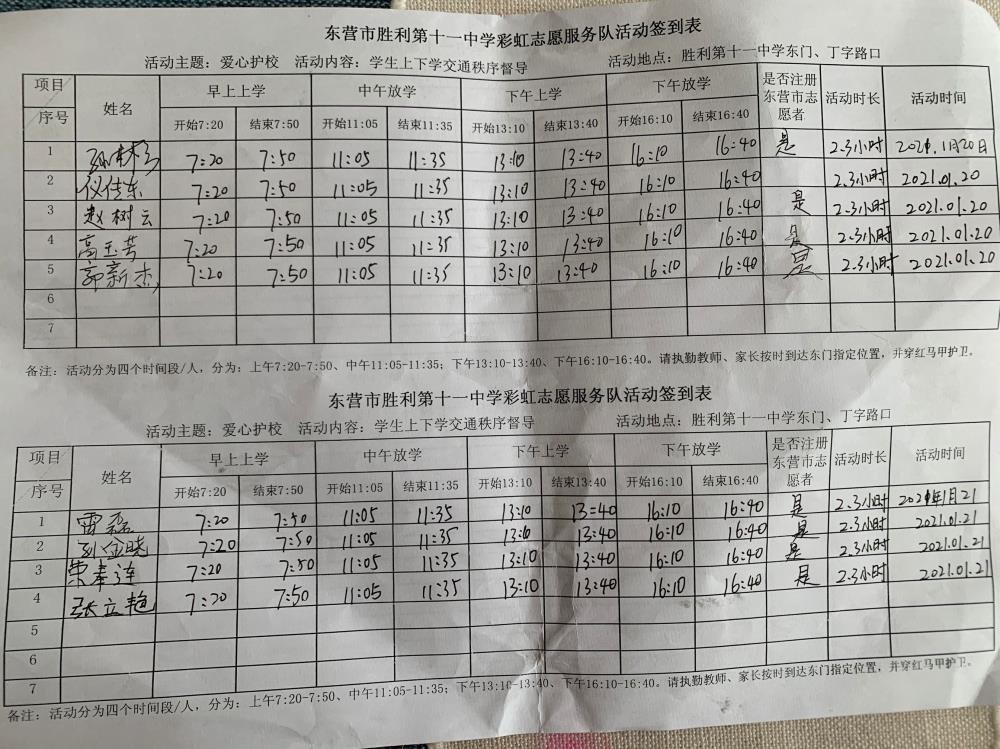 东营市胜利第十一中学彩虹志愿服务队活动签到表
活动主题：爱心护校 活动内容：学生上下学交通秩序督导 活动地点：胜利第十一中学东门、丁字路口
项目 序号 姓名 早上上学 中午放学 下午上学 下午放学 是否注册东营市志愿者 活动时长 活动时间
开始7:20 结束7:50 开始11:05 结束11:35 开始13:10 结束13:40 开始16:10 结束16:40
1 7:20 7:50 11:05 11:35 13:10 13:40 16:10 16:40 是 2.3小时 2021.1月20日
2 仪佳东 7:20 7:50 11:05 11:35 13:10 13:40 16:10 16:40 2.3小时 2021.01.20
3 赵树云 7:20 7:50 11:05 11:35 13:10 13:40 16:10 16:40 是 2.3小时 2021.01.20
4 高玉芳 7:20 7:50 11:05 11:35 13:10 13:40 16:10 16:40 是 2.3小时 2021.01.20
5 郭新杰 7:20 7:50 11:05 11:35 13:10 13:40 16:10 16:40 是 2.3小时 2021.01.20
6
7
备注：活动分为四个时间段/人，分为：上午7:20-7:50、中午11:05-11:35；下午13:10-13:40、下午16:10-16:40。请执勤教师、家长按时到达东门指定位置，并穿红马甲护卫。
东营市胜利第十一中学彩虹志愿服务队活动签到表
活动主题：爱心护校 活动内容：学生上下学交通秩序督导 活动地点：胜利第十一中学东门、丁字路口
项目 序号 姓名 早上上学 中午放学 下午上学 下午放学 是否注册东营市志愿者 活动时长 活动时间
开始7:20 结束7:50 开始11:05 结束11:35 开始13:10 结束13:40 开始16:10 结束16:40
1 雷磊 7:20 7:50 11:05 11:35 13:10 13:40 16:10 16:40 是 2.3小时 2021年1月21
2 刘金晓 7:20 7:50 11:05 11:35 13:10 13:40 16:10 16:40 是 2.3小时 2021.01.21
3 荣春连 7:20 7:50 11:05 11:35 13:10 13:40 16:10 16:40 是 2.3小时 2021.01.21
4 张立艳 7:20 7:50 11:05 11:35 13:10 13:40 16:10 16:40 是 2.3小时 2021.01.21
5
6
7
备注：活动分为四个时间段/人，分为：上午7:20-7:50、中午11:05-11:35；下午13:10-13:40、下午16:10-16:40。请执勤教师、家长按时到达东门指定位置，并穿红马甲护卫。